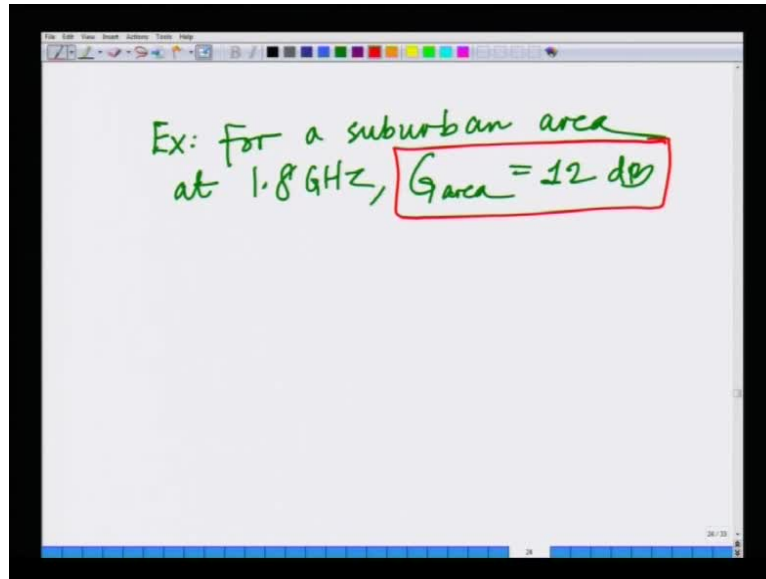 File Edit View Insert Actions Tools Help
Ex: For a suburban area
at 1.8 GHz, G area = 12 dB
28 / 33
28